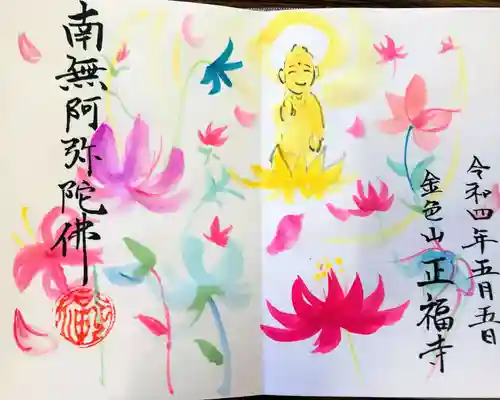 令和四年五月五日
金色山
正福寺
南無阿弥陀佛